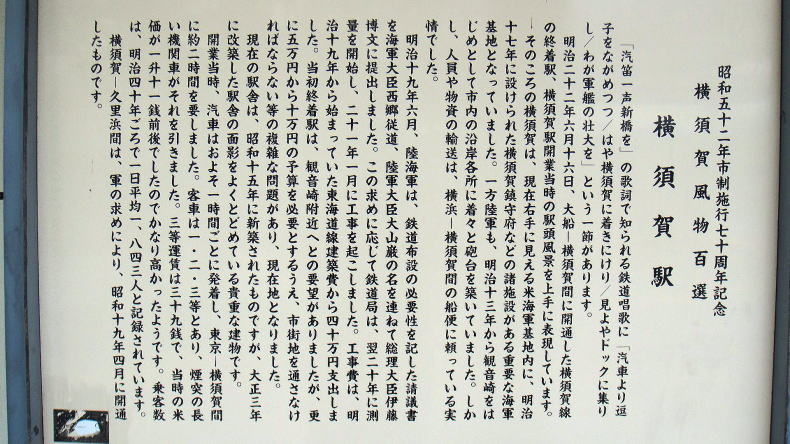 昭和五十二年市制施行七十周年記念
横須賀風物百選
横須賀駅
「汽笛一声新橋を」の歌詞で知られる鉄道唱歌に「汽車より逗
子をながめつつ／はや横須賀に着きにけり／見よやドックに集り
し／わが軍艦の壮大を」という一節があります。
明治二十二年六月十六日、大船―横須賀間に開通した横須賀線
の終着駅、横須賀駅開業当時の駅頭風景を上手に表現しています。
―そのころの横須賀は、現在右手に見える米海軍基地内に、明治
十七年に設けられた横須賀鎮守府などの諸施設がある重要な海軍
基地となっていました。一方陸軍も、明治十三年から観音崎をは
じめとして市内の沿岸各所に着々と砲台を築いていました。しか
し、人員や物資の輸送は、横浜―横須賀間の船便に頼っている実
情でした。
明治十九年六月、陸海軍は、鉄道布設の必要性を記した請議書
を海軍大臣西郷従道、陸軍大臣大山巌の名を連ねて総理大臣伊藤
博文に提出しました。この求めに応じて鉄道局は、翌二十年に測
量を開始し、二十一年一月に工事を起こしました。工事費は、明
治十九年から始まっていた東海道線建築費から四十万円支出しま
した。当初終着駅は、観音崎附近へとの要望がありましたが、更
に五万円から十万円の予算を必要とするうえ、市街地を通さなけ
ればならない等の複雑な問題があり、現在地となりました。
現在の駅舎は、昭和十五年に新築されたものですが、大正三年
に改築した駅舎の面影をよくとどめている貴重な建物です。
開業当時、汽車はおよそ一時間ごとに発着し、東京―横須賀間
に約二時間を要しました。客車は一・二・三等とあり、煙突の長
い機関車がそれを引きました。三等運賃は三十九銭で、当時の米
価が一升十一銭前後でしたのでかなり高かったようです。乗客数
は、明治四十年ごろで一日平均一、八四三人と記録されています。
横須賀―久里浜間は、軍の求めにより、昭和十九年四月に開通
したものです。